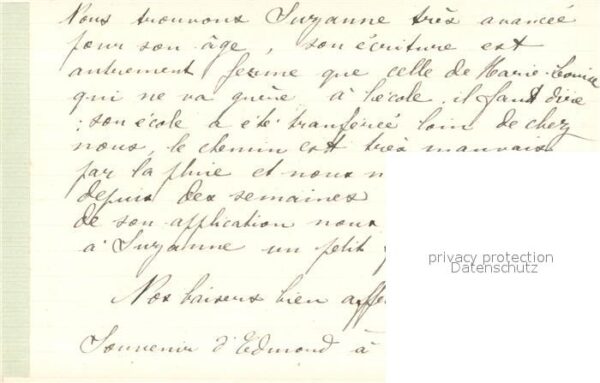 Nous trouvons Suzanne très avancée
pour son âge, son écriture est
autrement ferme que celle de Marie-Louise
qui ne va guère à l'école, il faut dire
: son école a été tranférée loin de chez
nous, le chemin est très mauvais
par la pluie et nous n
depuis des semaines
de son application nous
à Suzanne un petit
Nos baisers bien affe
Souvenir d'Edmond à
privacy protection
Datenschutz